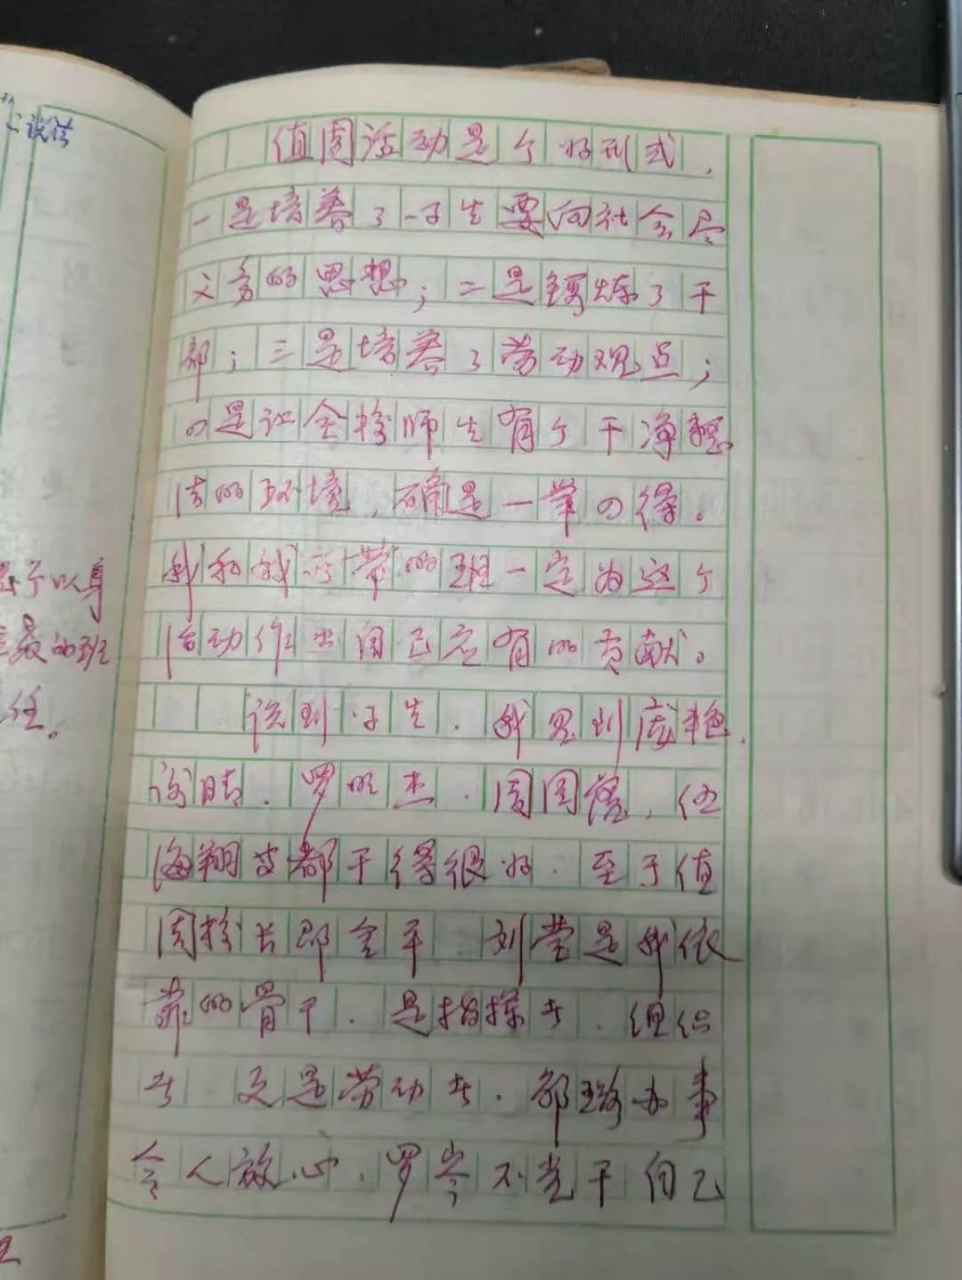 心谈话
予以身
的班
任。
值周活动是个好形式,
一是培养了学生要向社会尽
义务的思想;二是锻炼了干
部;三是培养了劳动观点;
四是让全校师生有个干净整
洁的环境,确是一举四得。
我和我所带的班一定为这个
活动作出自己应有的贡献。
说到学生,我见到庞艳,
谈晴、罗明杰、周围,伍
海翔等都干得很好。至于值
周校长郎金平、刘莹是我依
靠的骨干,是指挥者、组织
者、又是劳动者。部璐办事
令人放心,罗岑不光干自己